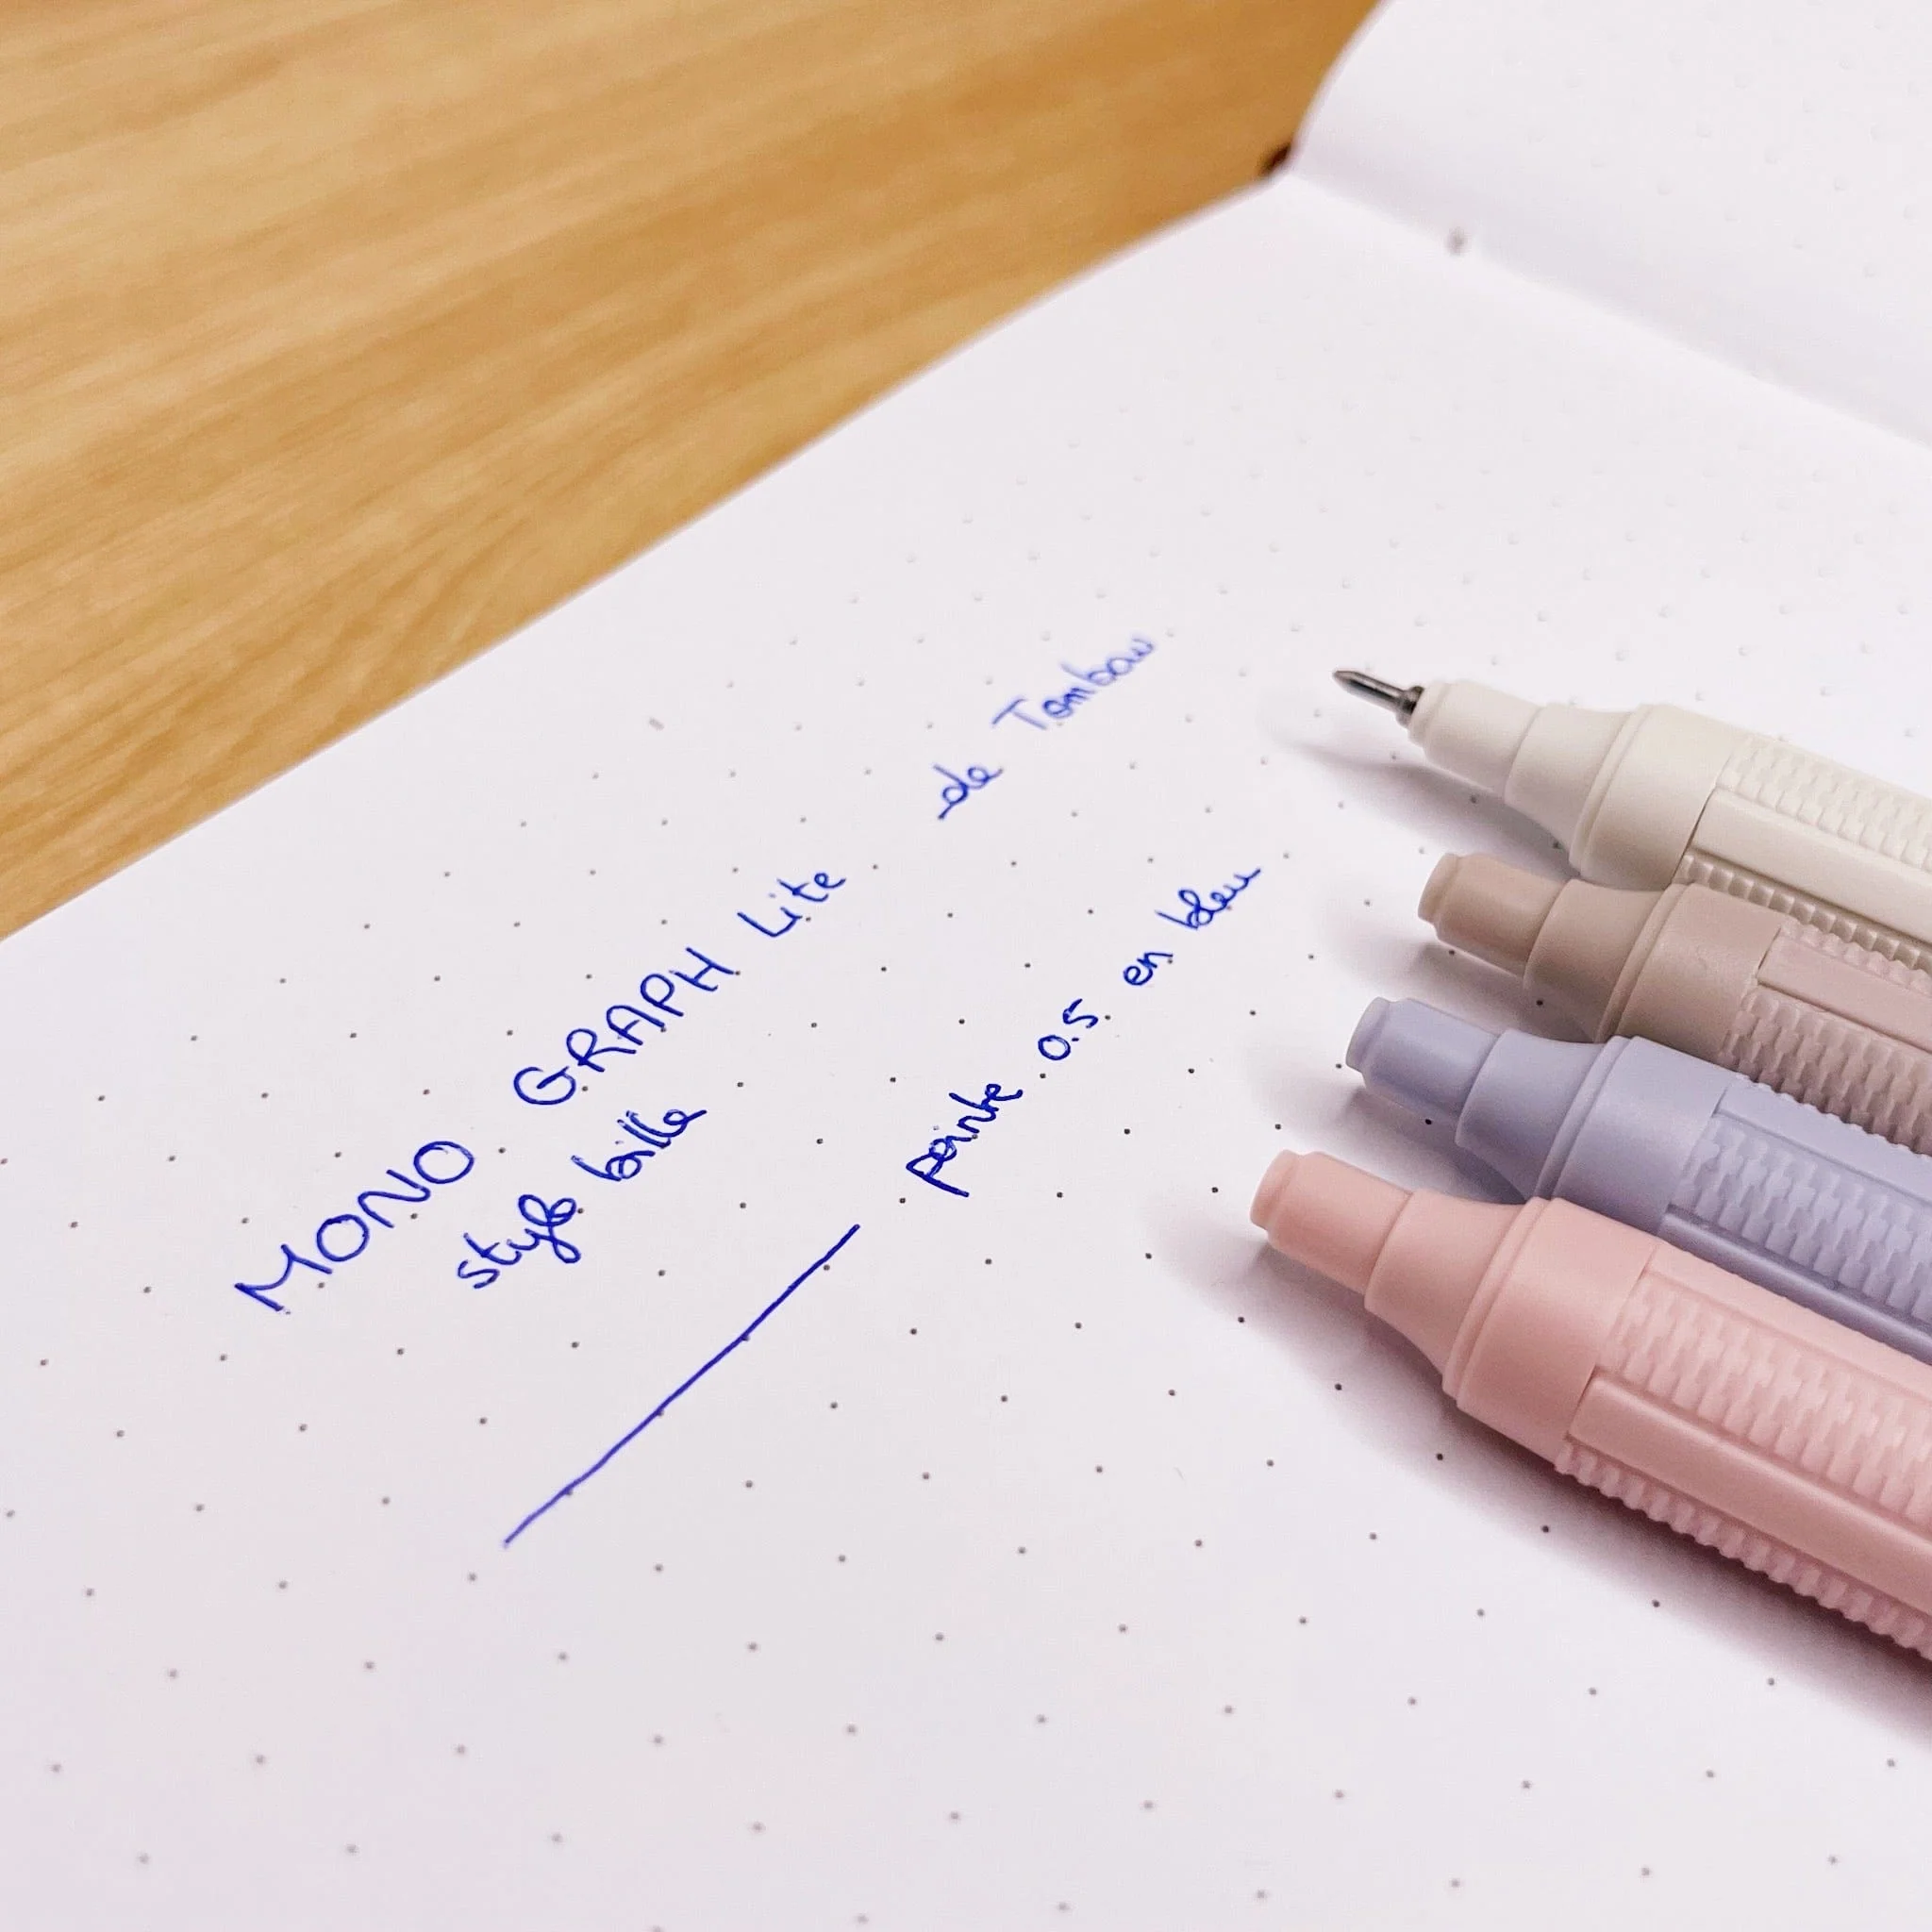 MONO GRAPH Lite de Tombow
stylo bille pointe 0.5 en bleu